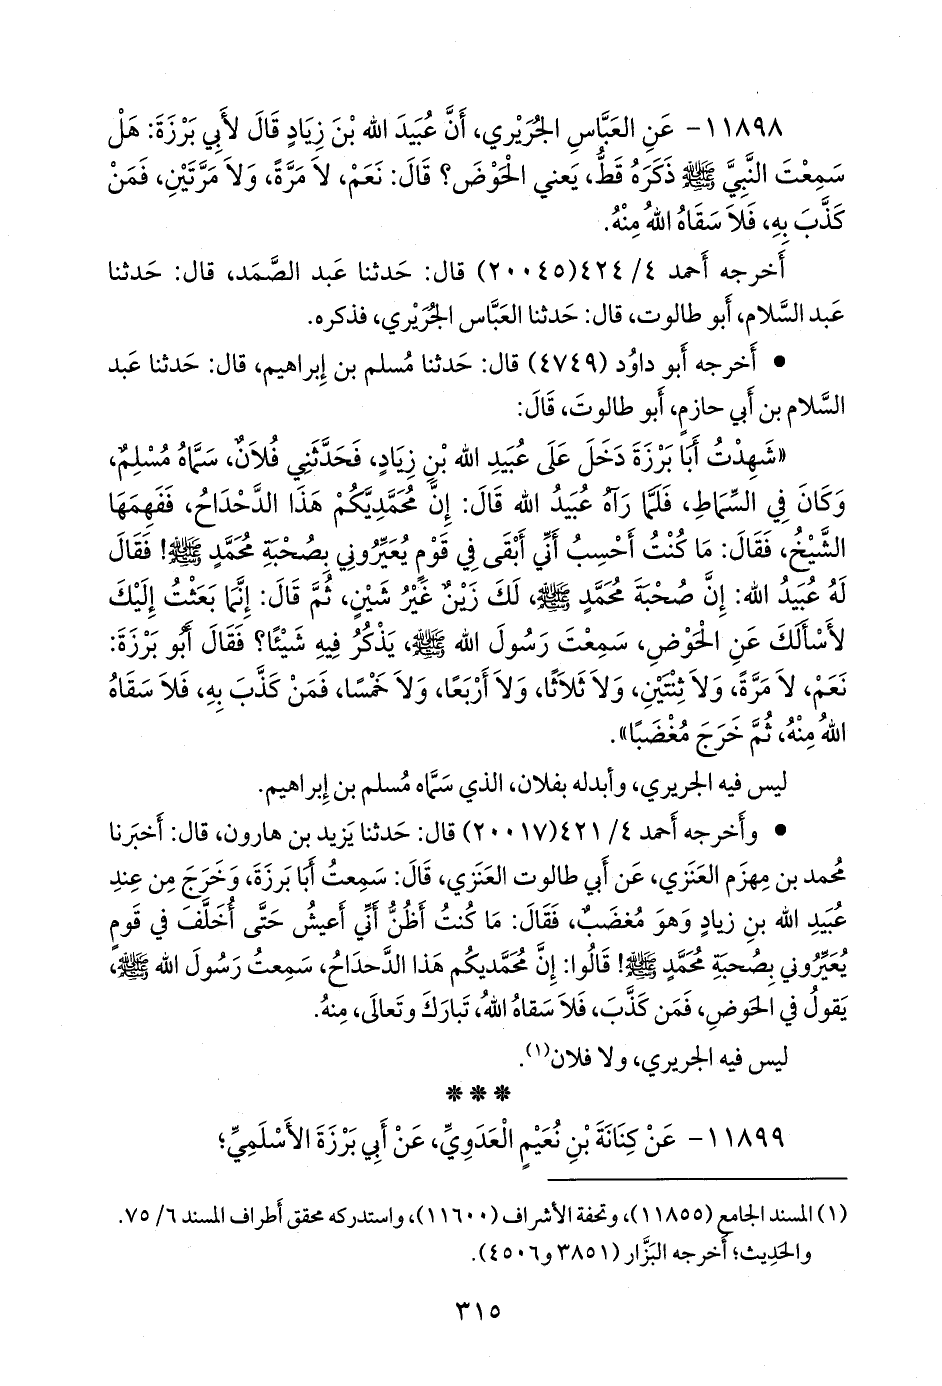 ١١٨٩٨- عَنِ العَبَّاسِ الجُرَيْرِي، أَنَّ عُبَيدَ الله بْنَ زِيَادٍ قَالَ لأَبِي بَرْزَةَ: هَلْ
سَمِعْتَ النَّبِيَّ ﷺ ذَكَرَهُ قَطُّ، يَعني الْحَوْضَ؟ قَالَ: نَعَمْ، لاَ مَرَّةً، وَلاَ مَرَّتَيْنِ، فَمَنْ
كَذَّبَ بِهِ، فَلاَ سَقَاهُ اللهُ مِنْهُ.
أَخرجه أَحمد ٤/ ٤٢٤(٢٠٠٤٥) قال: حَدثنا عَبد الصَّمَد، قال: حَدثنا
عَبد السَّلام، أَبو طالوت، قال: حَدثنا العَبَّاس الجُرَيْري، فذكره.
• أَخرجه أَبو داوُد (٤٧٤٩) قال: حَدثنا مُسلم بن إِبراهيم، قال: حَدثنا عَبد
السَّلام بن أَبي حازم، أَبو طالوتَ، قَالَ:
«شَهِدْتُ أَبَا بَرْزَةَ دَخَلَ عَلَى عُبَيدِ الله بْنِ زِيَادٍ، فَحَدَّثَنِي فُلاَنٌ، سَمَّاهُ مُسْلِمٌ،
وَكَانَ فِي السِّمَاطِ، فَلَمَّا رَآهُ عُبَيدُ الله قَالَ: إِنَّ مُحَمَّدِيَّكُمْ هَذَا الدَّحْدَاحُ، فَفَهِمَهَا
الشَّيْخُ، فَقَالَ: مَا كُنْتُ أَحْسِبُ أَنِّي أَبْقَى فِي قَوْمٍ يُعَيِّرُونِي بِصُحْبَةِ مُحَمَّدٍ ﷺ! فَقَالَ
لَهُ عُبَيدُ الله: إِنَّ صُحْبَةَ مُحَمَّدٍ ﷺ، لَكَ زَيْنٌ غَيْرُ شَيْنٍ، ثُمَّ قَالَ: إِنَّمَا بَعَثْتُ إِلَيْكَ
لأَسْأَلَكَ عَنِ الْحَوْضِ، سَمِعْتَ رَسُولَ الله ﷺ، يَذْكُرُ فِيهِ شَيْئًا؟ فَقَالَ أَبُو بَرْزَةَ:
نَعَمْ، لاَ مَرَّةً، وَلاَ ثِنْتَيْنِ، وَلاَ ثَلاَثًا، وَلاَ أَرْبَعًا، وَلاَ خَمْسًا، فَمَنْ كَذَّبَ بِهِ، فَلاَ سَقَاهُ
اللهُ مِنْهُ، ثُمَّ خَرَجَ مُغْضَبًا».
ليس فيه الجريري، وأبدله بفلان، الذي سَمَّاه مُسلم بن إِبراهيم.
• وأَخرجه أَحمد ٤/ ٤٢١(٢٠٠١٧) قال: حَدثنا يَزيد بن هارون، قال: أَخبَرنا
مُحمد بن مِهزَم العَنَزي، عَن أَبي طالوت العَنَزي، قَالَ: سَمِعتُ أَبَا بَرزَةَ، وَخَرَجَ مِن عِندِ
عُبَيدِ الله بنِ زيادٍ وَهوَ مُغضَبٌ، فَقَالَ: مَا كُنتُ أَظُنُّ أَنِّي أَعيشُ حَتَّى أُخَلَّفَ في قَومٍ
يُعَيِّرُوني بِصُحبَةِ مُحَمَّدٍ ﷺ! قَالُوا: إِنَّ مُحَمَّديكُم هَذا الدَّحداحُ، سَمِعتُ رَسُولَ الله ﷺ،
يَقولُ في الحَوضِ، فَمَن كَذَّبَ، فَلاَ سَقاهُ اللهُ، تَبارَكَ وتَعالَى، مِنهُ.
ليس فيه الجريري، ولا فلان(١).
***
١١٨٩٩- عَنْ كِنَانَةَ بْنِ نُعَيْمٍ الْعَدَوِيِّ، عَنْ أَبِي بَرْزَةَ الأَسْلَمِيِّ؛
(١) المسند الجامع (١١٨٥٥)، وتحفة الأشراف (١١٦٠٠)، واستدركه محقق أَطراف المسند ٦/ ٧٥.
والحَدِيث؛ أَخرجه البَزَّار (٣٨٥١ و٤٥٠٦).
٣١٥